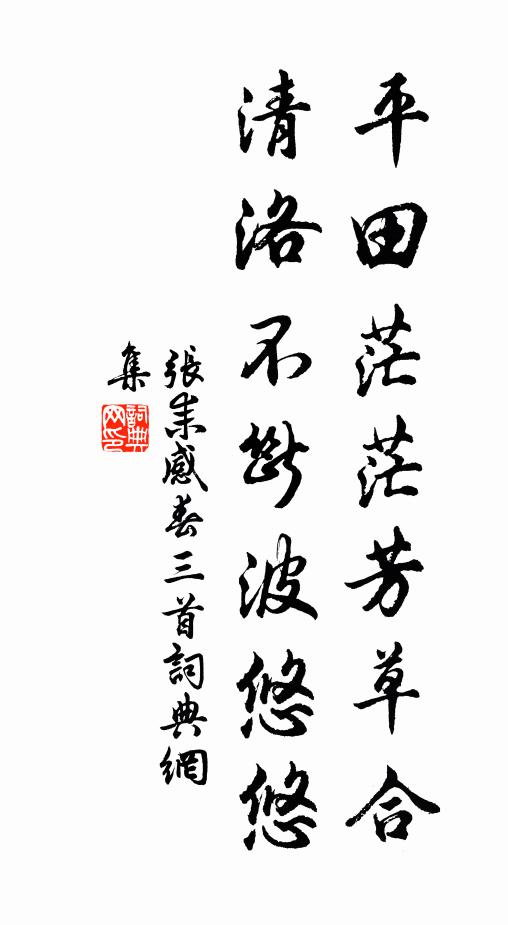 平田茫茫芳草合
清洛不斷波悠悠
張耒感春三首詞典網
集
詞典網印